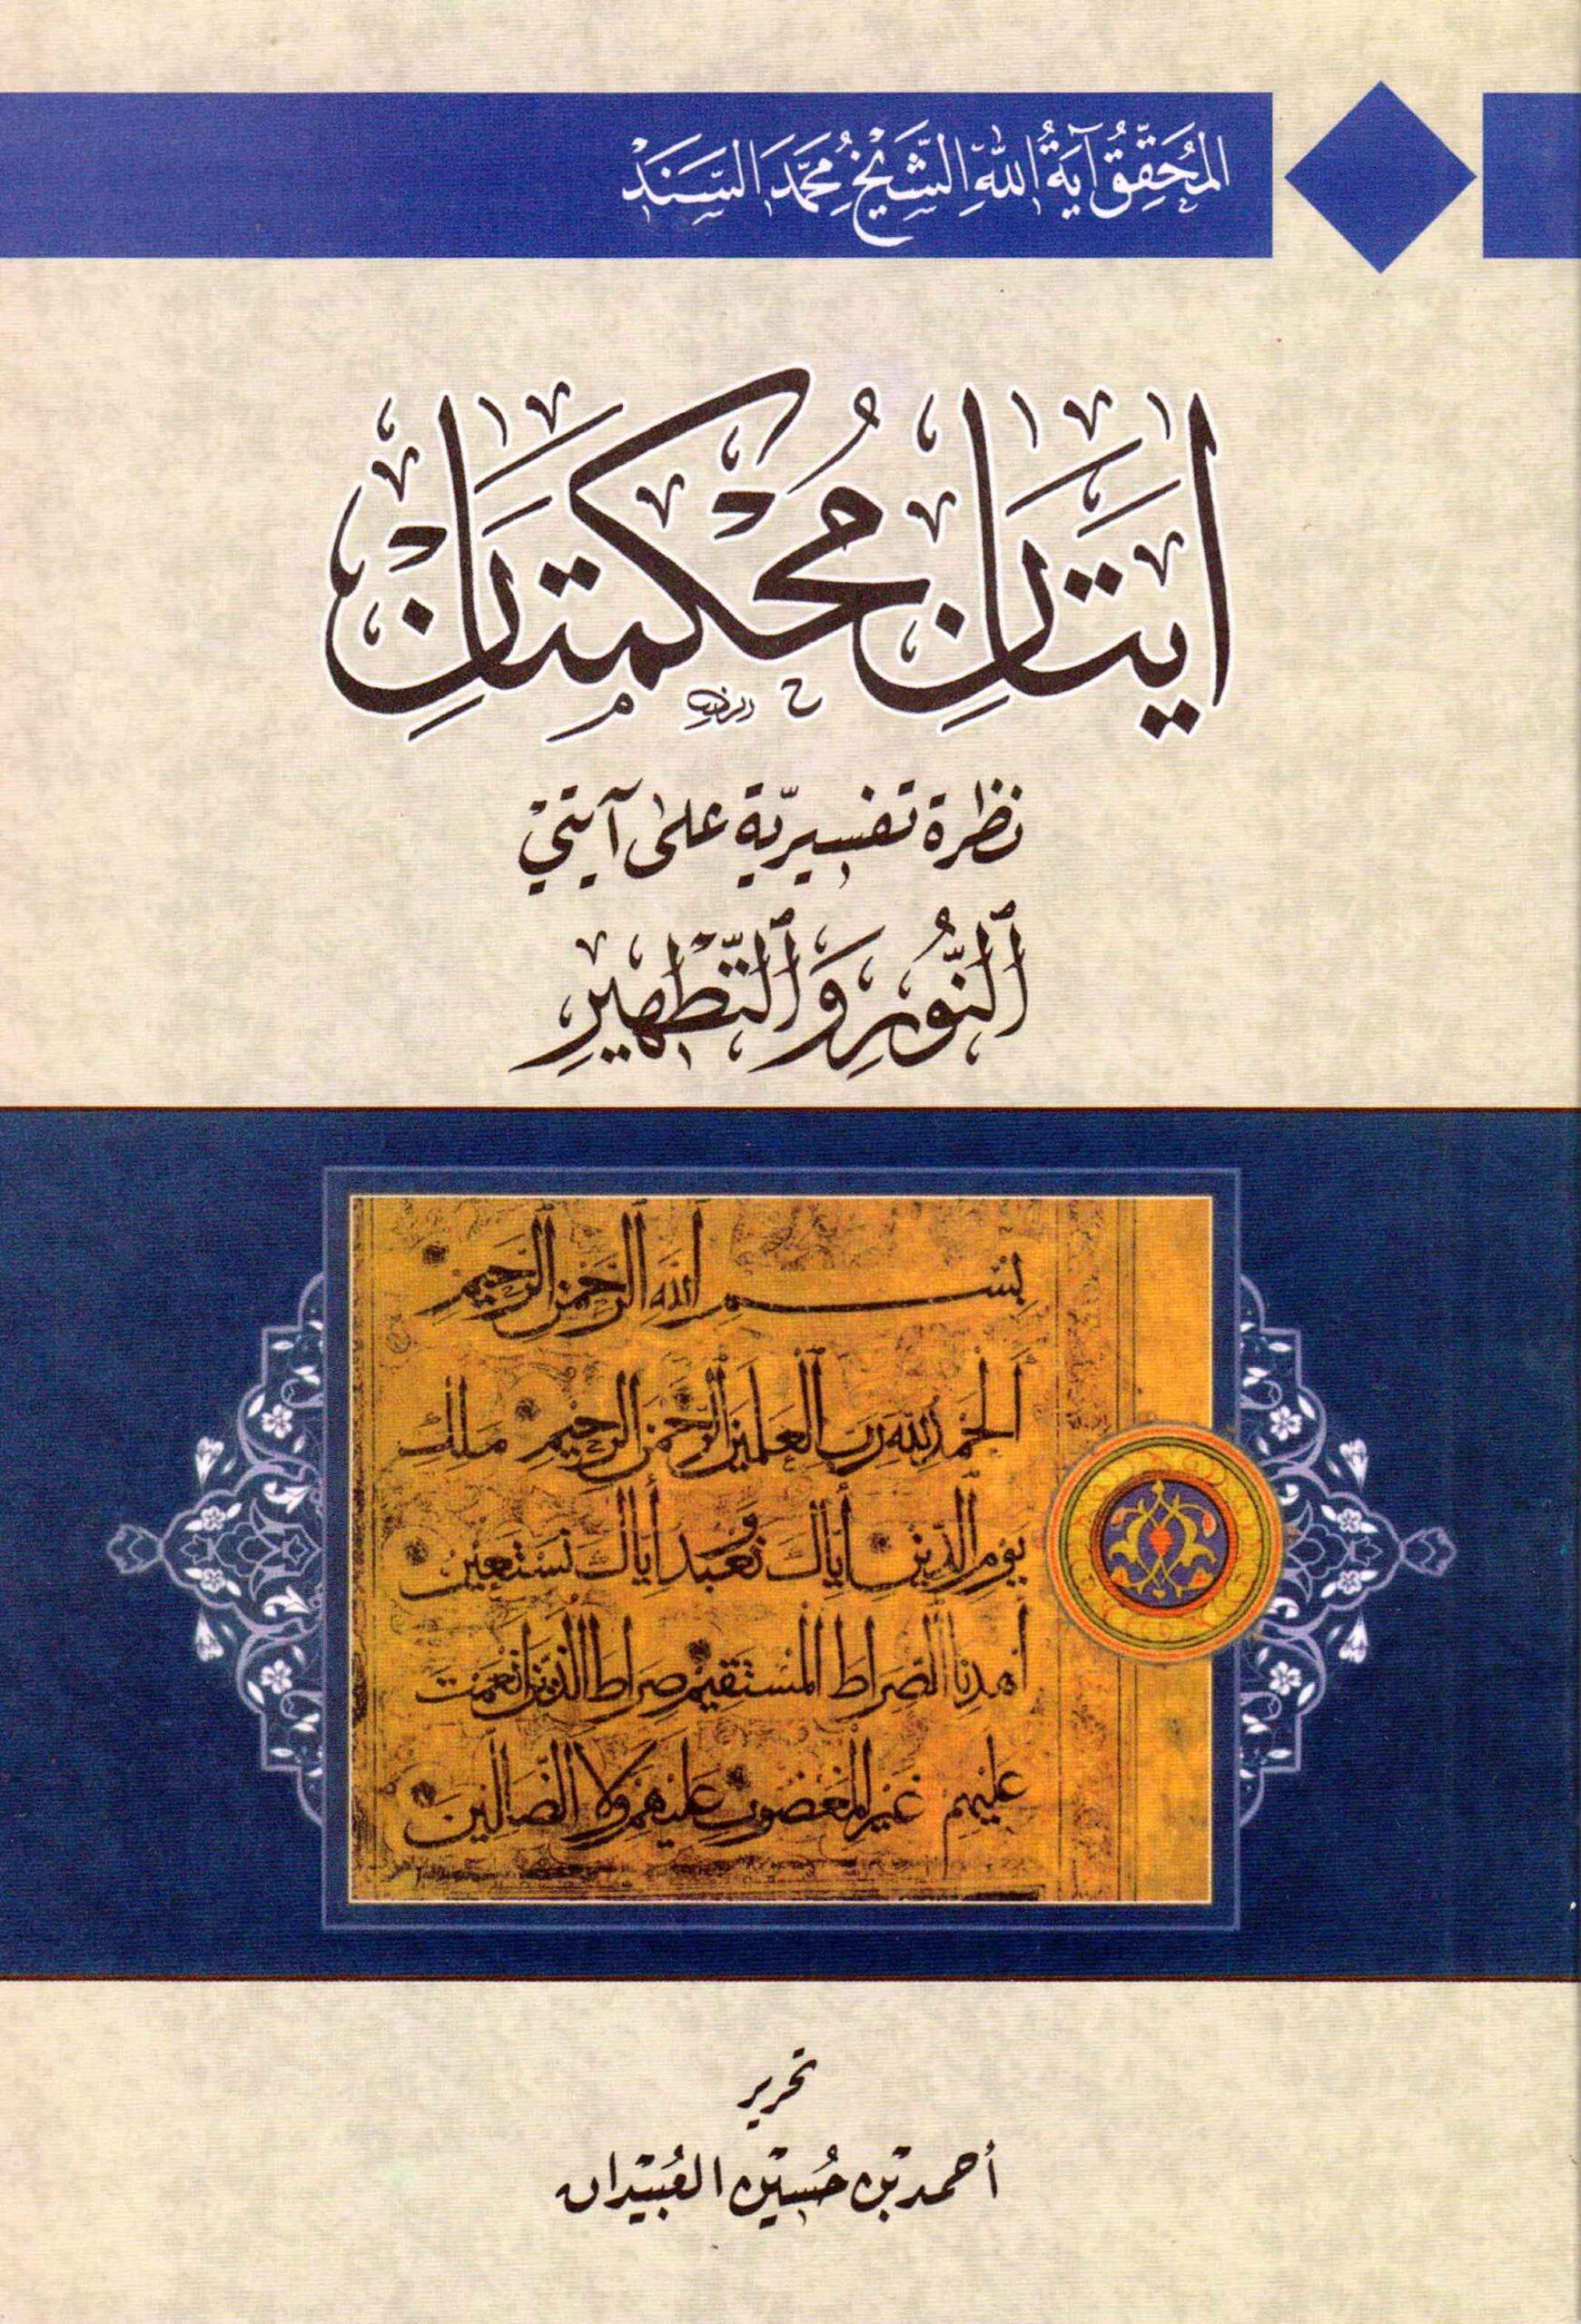 المُحَقِّقُ آيَةُ اللهِ الشَّيْخُ مُحَمَّد السَّنَدْ
ايتَانِ مُحْكَمَتَانِ
نظرة تفسيريّة على آيتيْ
ٱلنُّورِ وَٱلتَّطْهِيرِ
بسم الله الرحمن الرحيم
الحمد لله رب العلمين الرحمن الرحيم ملك
يوم الدين اياك نعبد واياك نستعين
اهدنا الصراط المستقيم صراط الذين انعمت
عليهم غير المغضوب عليهم ولا الضالين
تحرير
أحمد بن حُسين العُبيدان